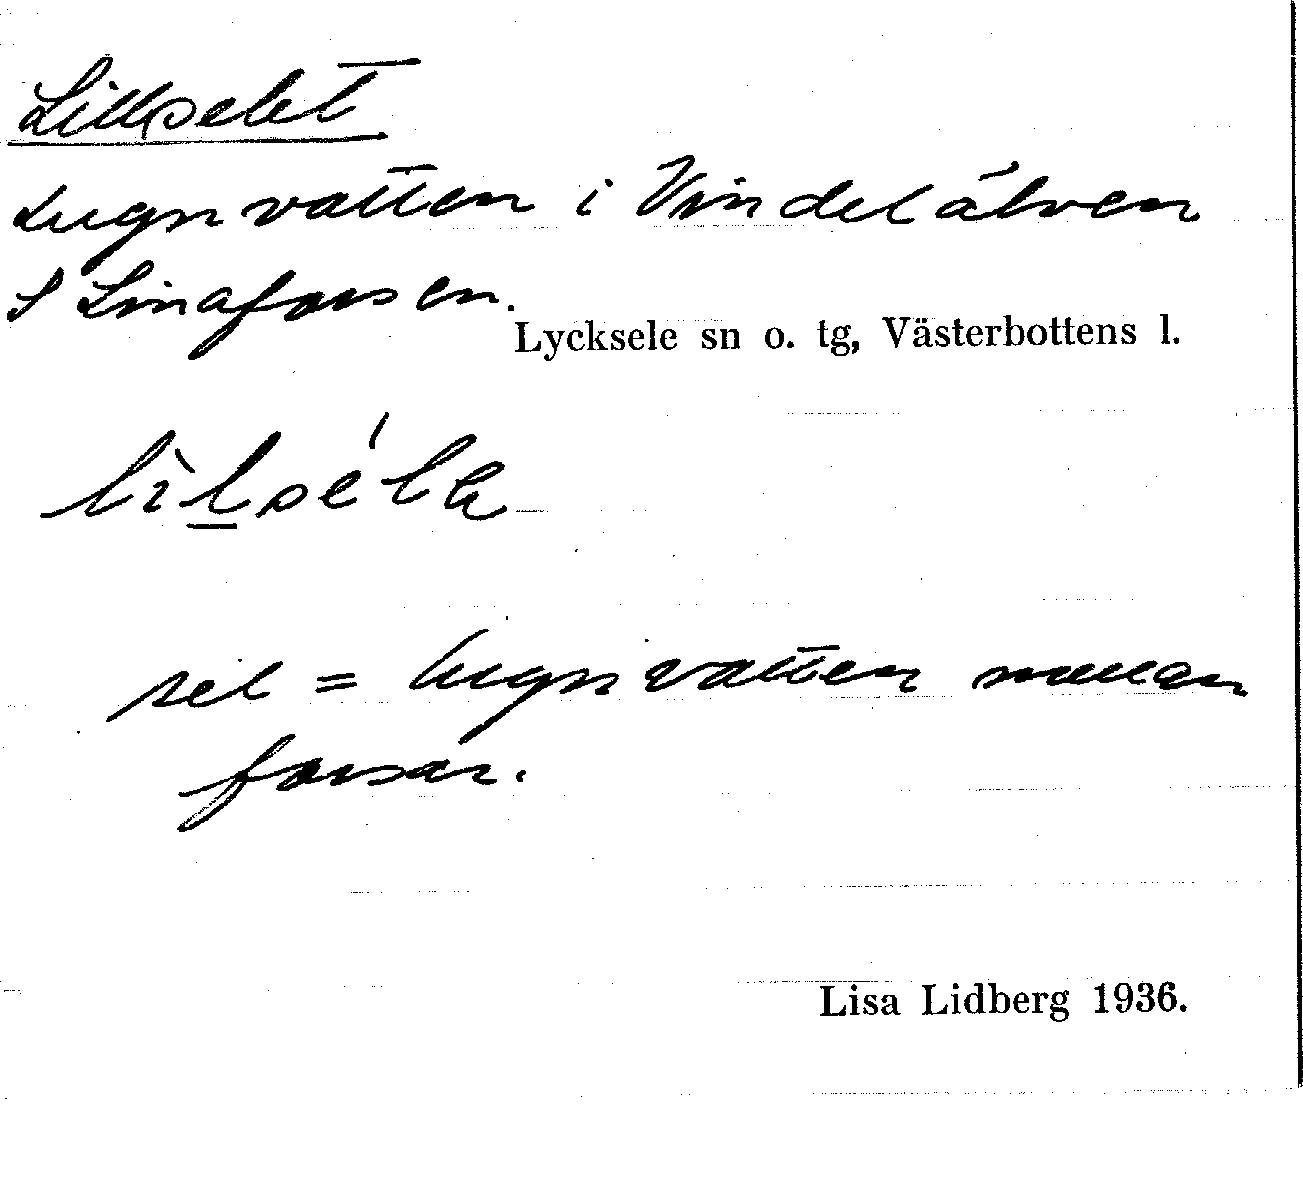 Lillselet
Lugnvatten i Vindelälven
S Linaforsen.
Lycksele sn o. tg, Västerbottens l.
sel = lugnvatten mellan
forsar.
Lisa Lidberg 1936.